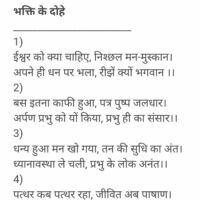 भक्ति के दोहे
____________________
1)
ईश्वर को क्या चाहिए, निश्छल मन-मुस्कान।
अपने ही धन पर भला, रीझें क्यों भगवान ।।
2)
बस इतना काफी हुआ, पत्र पुष्प जलधार।
अर्पण प्रभु को यों किया, प्रभु ही का संसार।।
3)
धन्य हुआ मन खो गया, तन की सुधि का अंत।
ध्यानावस्था ले चली, प्रभु के लोक अनंत।।
4)
पत्थर कब पत्थर रहा, जीवित अब पाषाण।